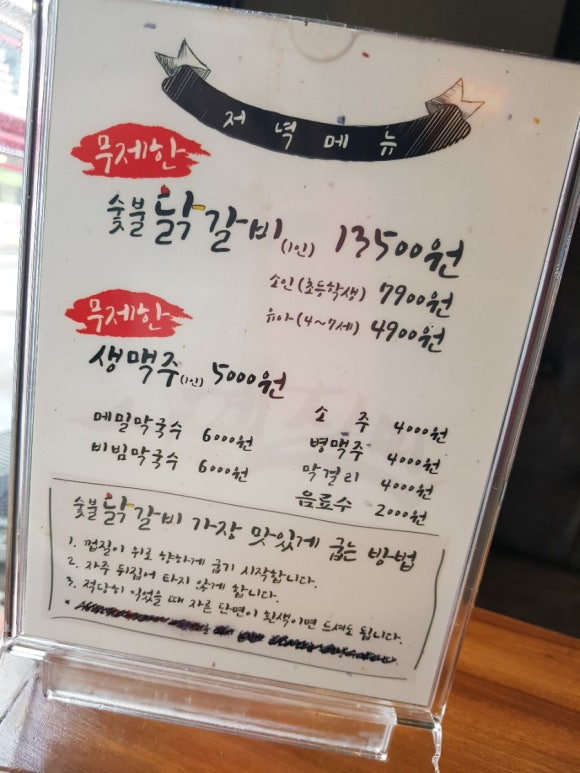 저녁메뉴
무제한
숯불닭갈비(1인) 13500원
소인(초등학생) 7900원
유아(4~7세) 4900원
무제한
생맥주(1인) 5000원
메밀막국수 6000원
비빔막국수 6000원
소주 4000원
병맥주 4000원
막걸리 4000원
음료수 2000원
숯불닭갈비 가장 맛있게 굽는 방법
1. 껍질이 위로 향하게 굽기 시작합니다.
2. 자주 뒤집어 타지 않게 합니다.
3. 적당히 익었을 때 자른 단면이 흰색이면 드셔도 됩니다.